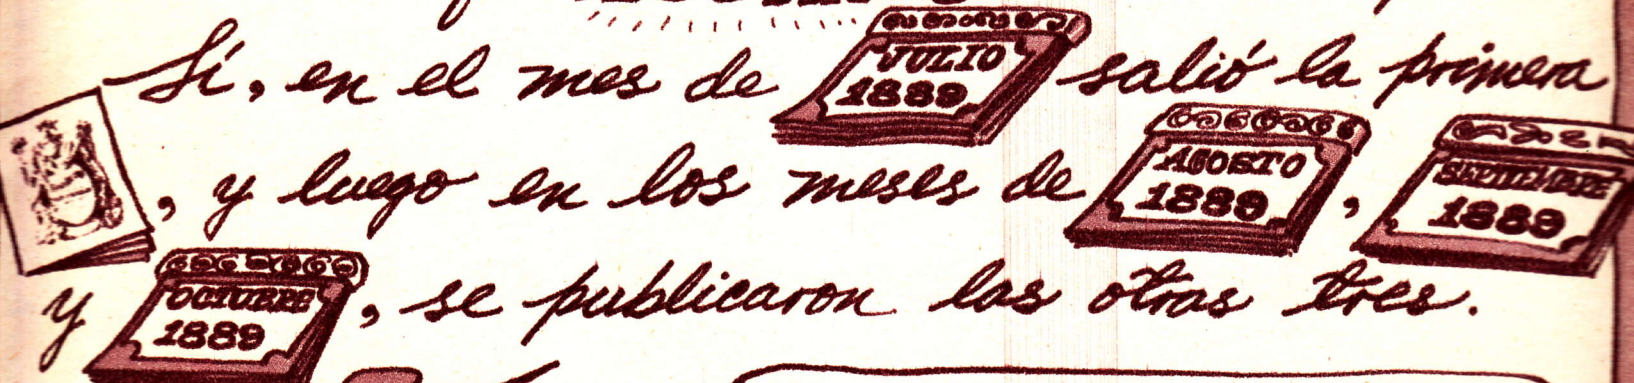 Sí, en el mes de JULIO 1889 salió la primera
, y luego en los meses de AGOSTO 1889, SEPTIEMBRE 1889
y OCTUBRE 1889, se publicaron las otras tres.